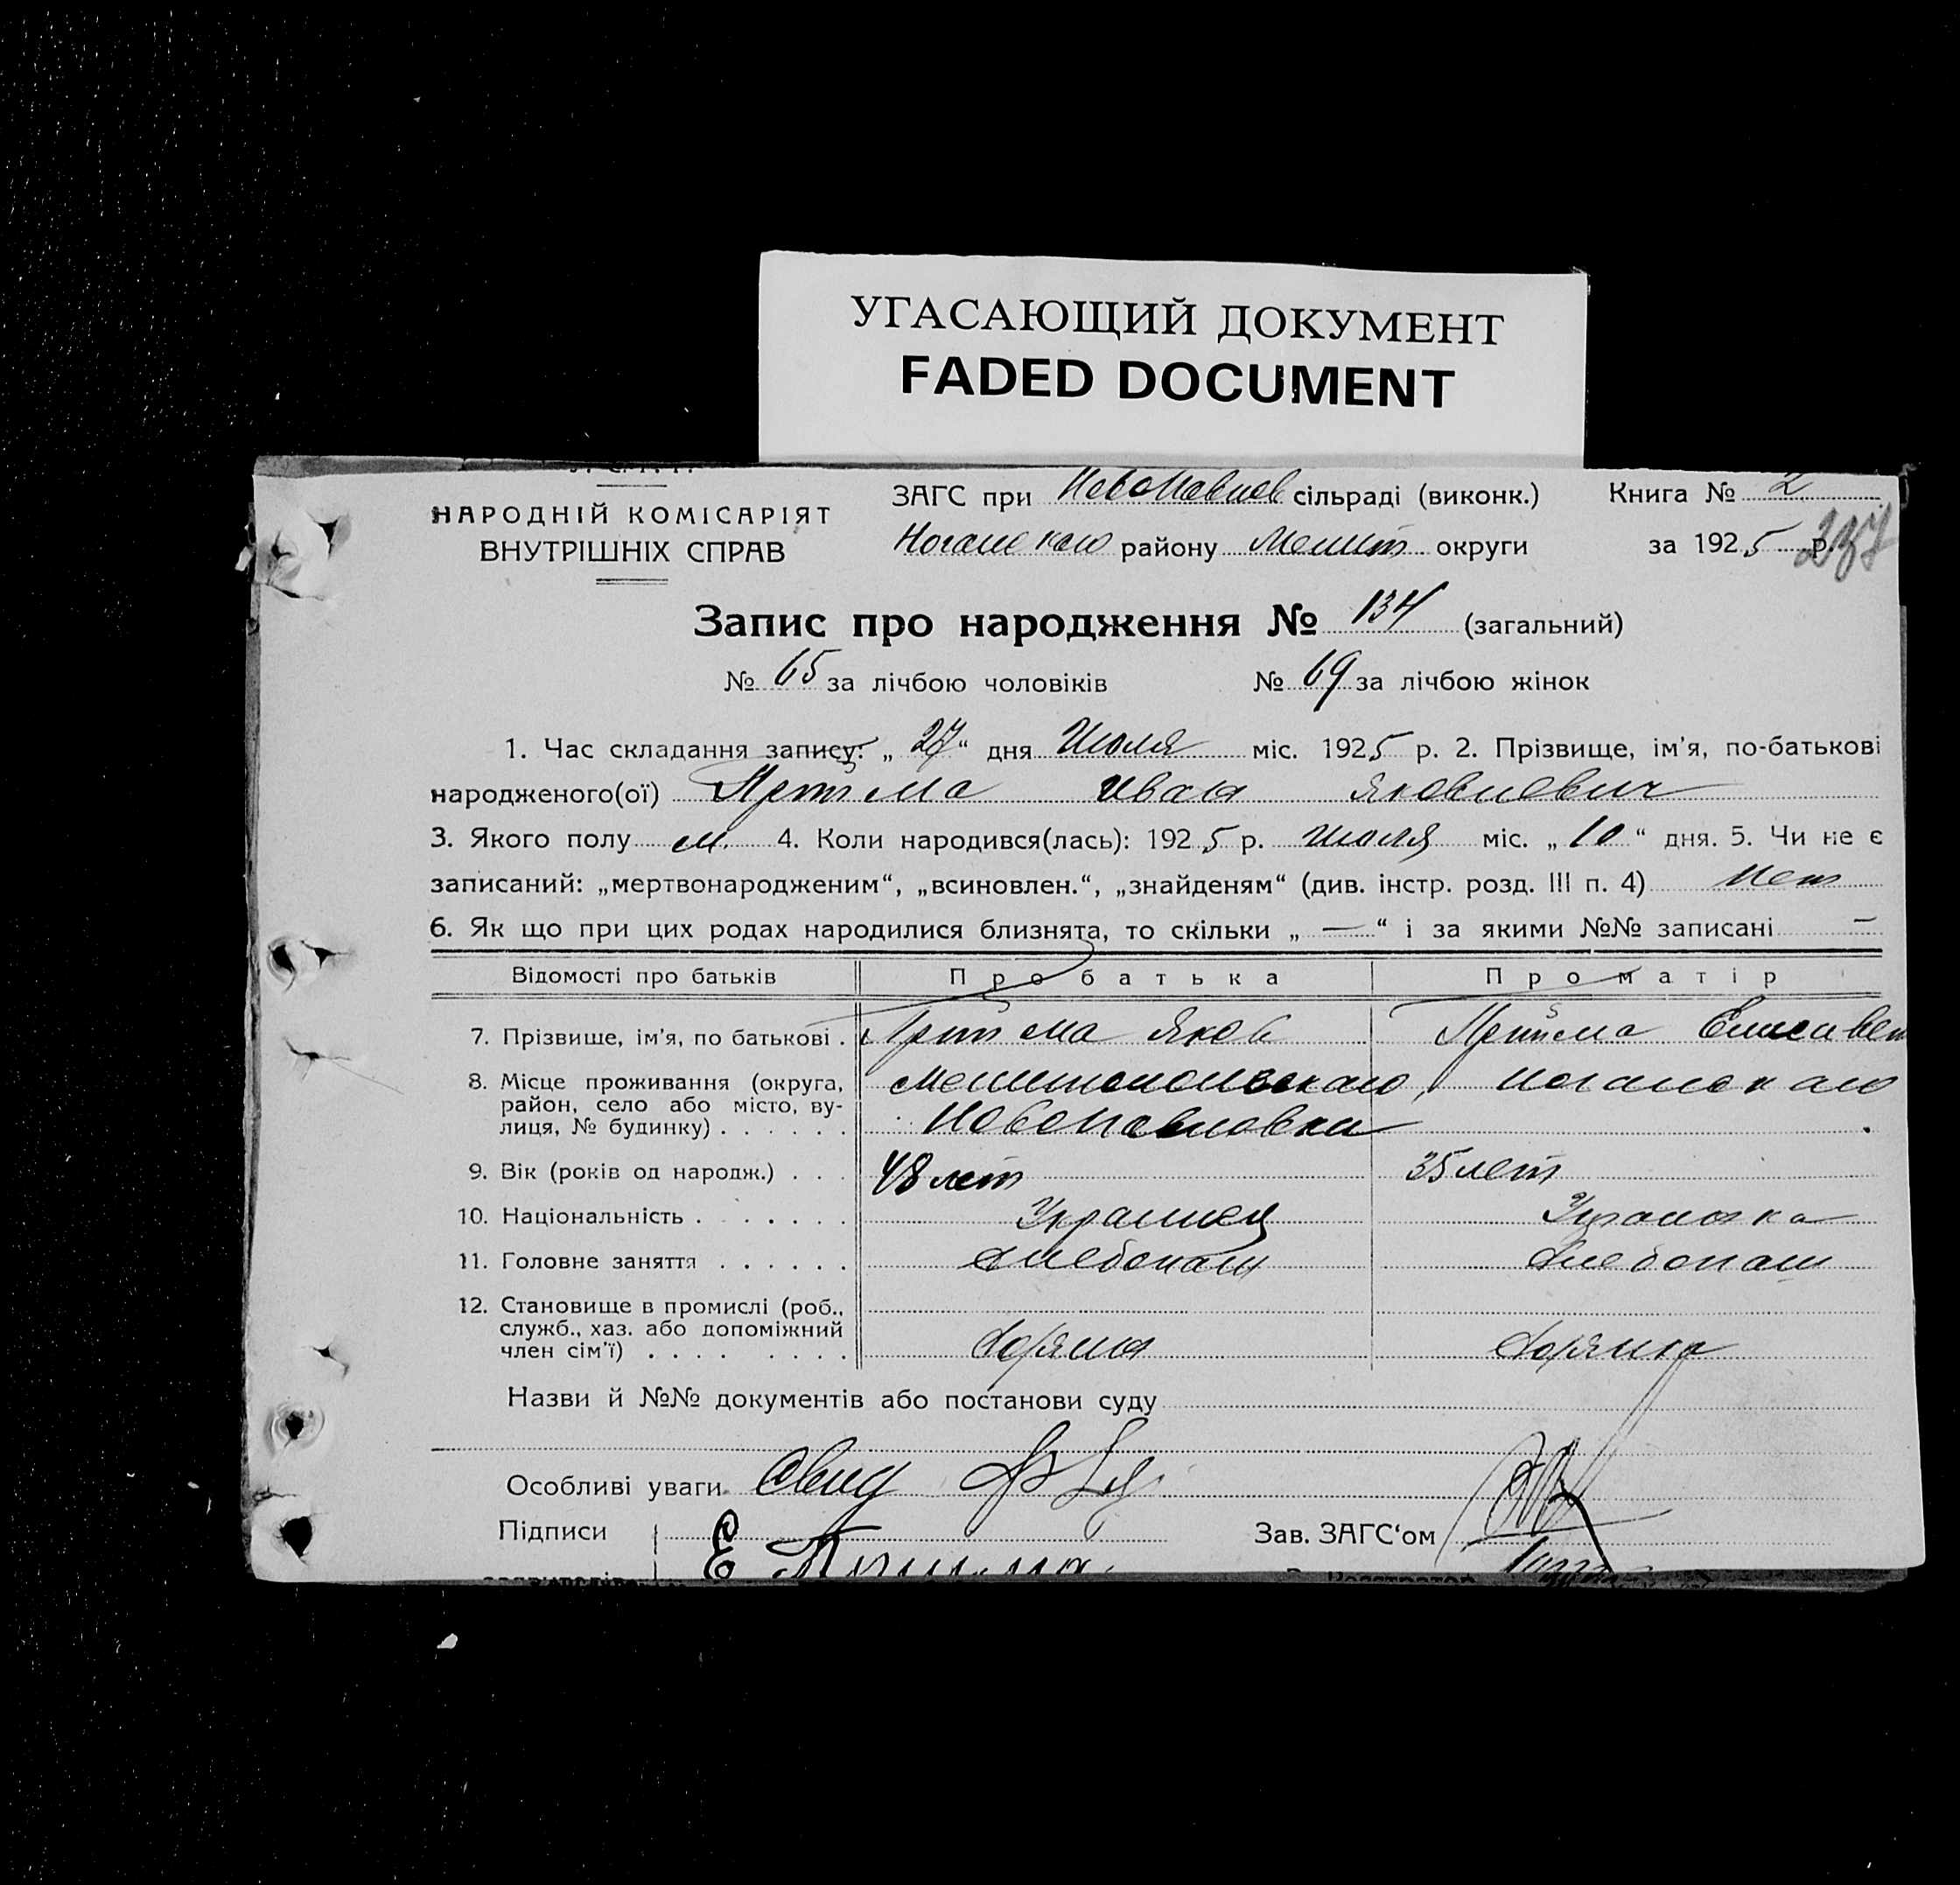 УГАСАЮЩИЙ ДОКУМЕНТ
FADED DOCUMENT
НАРОДНІЙ КОМІСАРІЯТ
ВНУТРІШНІХ СПРАВ
ЗАГС при Новопавлов сільраді (виконк.) Книга № 2
Ногайского району Мелит округи за 1925 р. 237
Запис про народження № 134 (загальний)
№ 65 за лічбою чоловіків № 69 за лічбою жінок
1. Час складання запису: „ 27 “ дня Июля міс. 1925 р. 2. Прізвище, ім'я, по-батькові
народженого(ої) Иван Яковлевич
3. Якого полу м. 4. Коли народився(лась): 1925 р. июля міс. „ 10 “ дня. 5. Чи не є
записаний: „мертвонародженим“, „всиновлен.“, „знайденям“ (див. інстр. розд. III п. 4) Нет
6. Як що при цих родах народилися близнята, то скільки „ — “ і за якими №№ записані —
Відомості про батьків Про батька Про матір
7. Прізвище, ім'я, по батькові . Яков Елисавет
8. Місце проживання (округа, Мелитопольскаго, Ногайскаго
район, село або місто, ву-
лиця, № будинку) . . . . . . Новопавловки
9. Вік (років од народж.) . . . 48 лет 35 лет
10. Національність . . . . . . . Украинец Украинка
11. Головне заняття . . . . . . Хлебопаш Хлебопаш
12. Становище в промислі (роб.,
служб., хаз. або допоміжний
член сім'ї) . . . . . . . . .
Назви й №№ документів або постанови суду
Особливі уваги
Підписи Зав. ЗАГС‘ом
Е